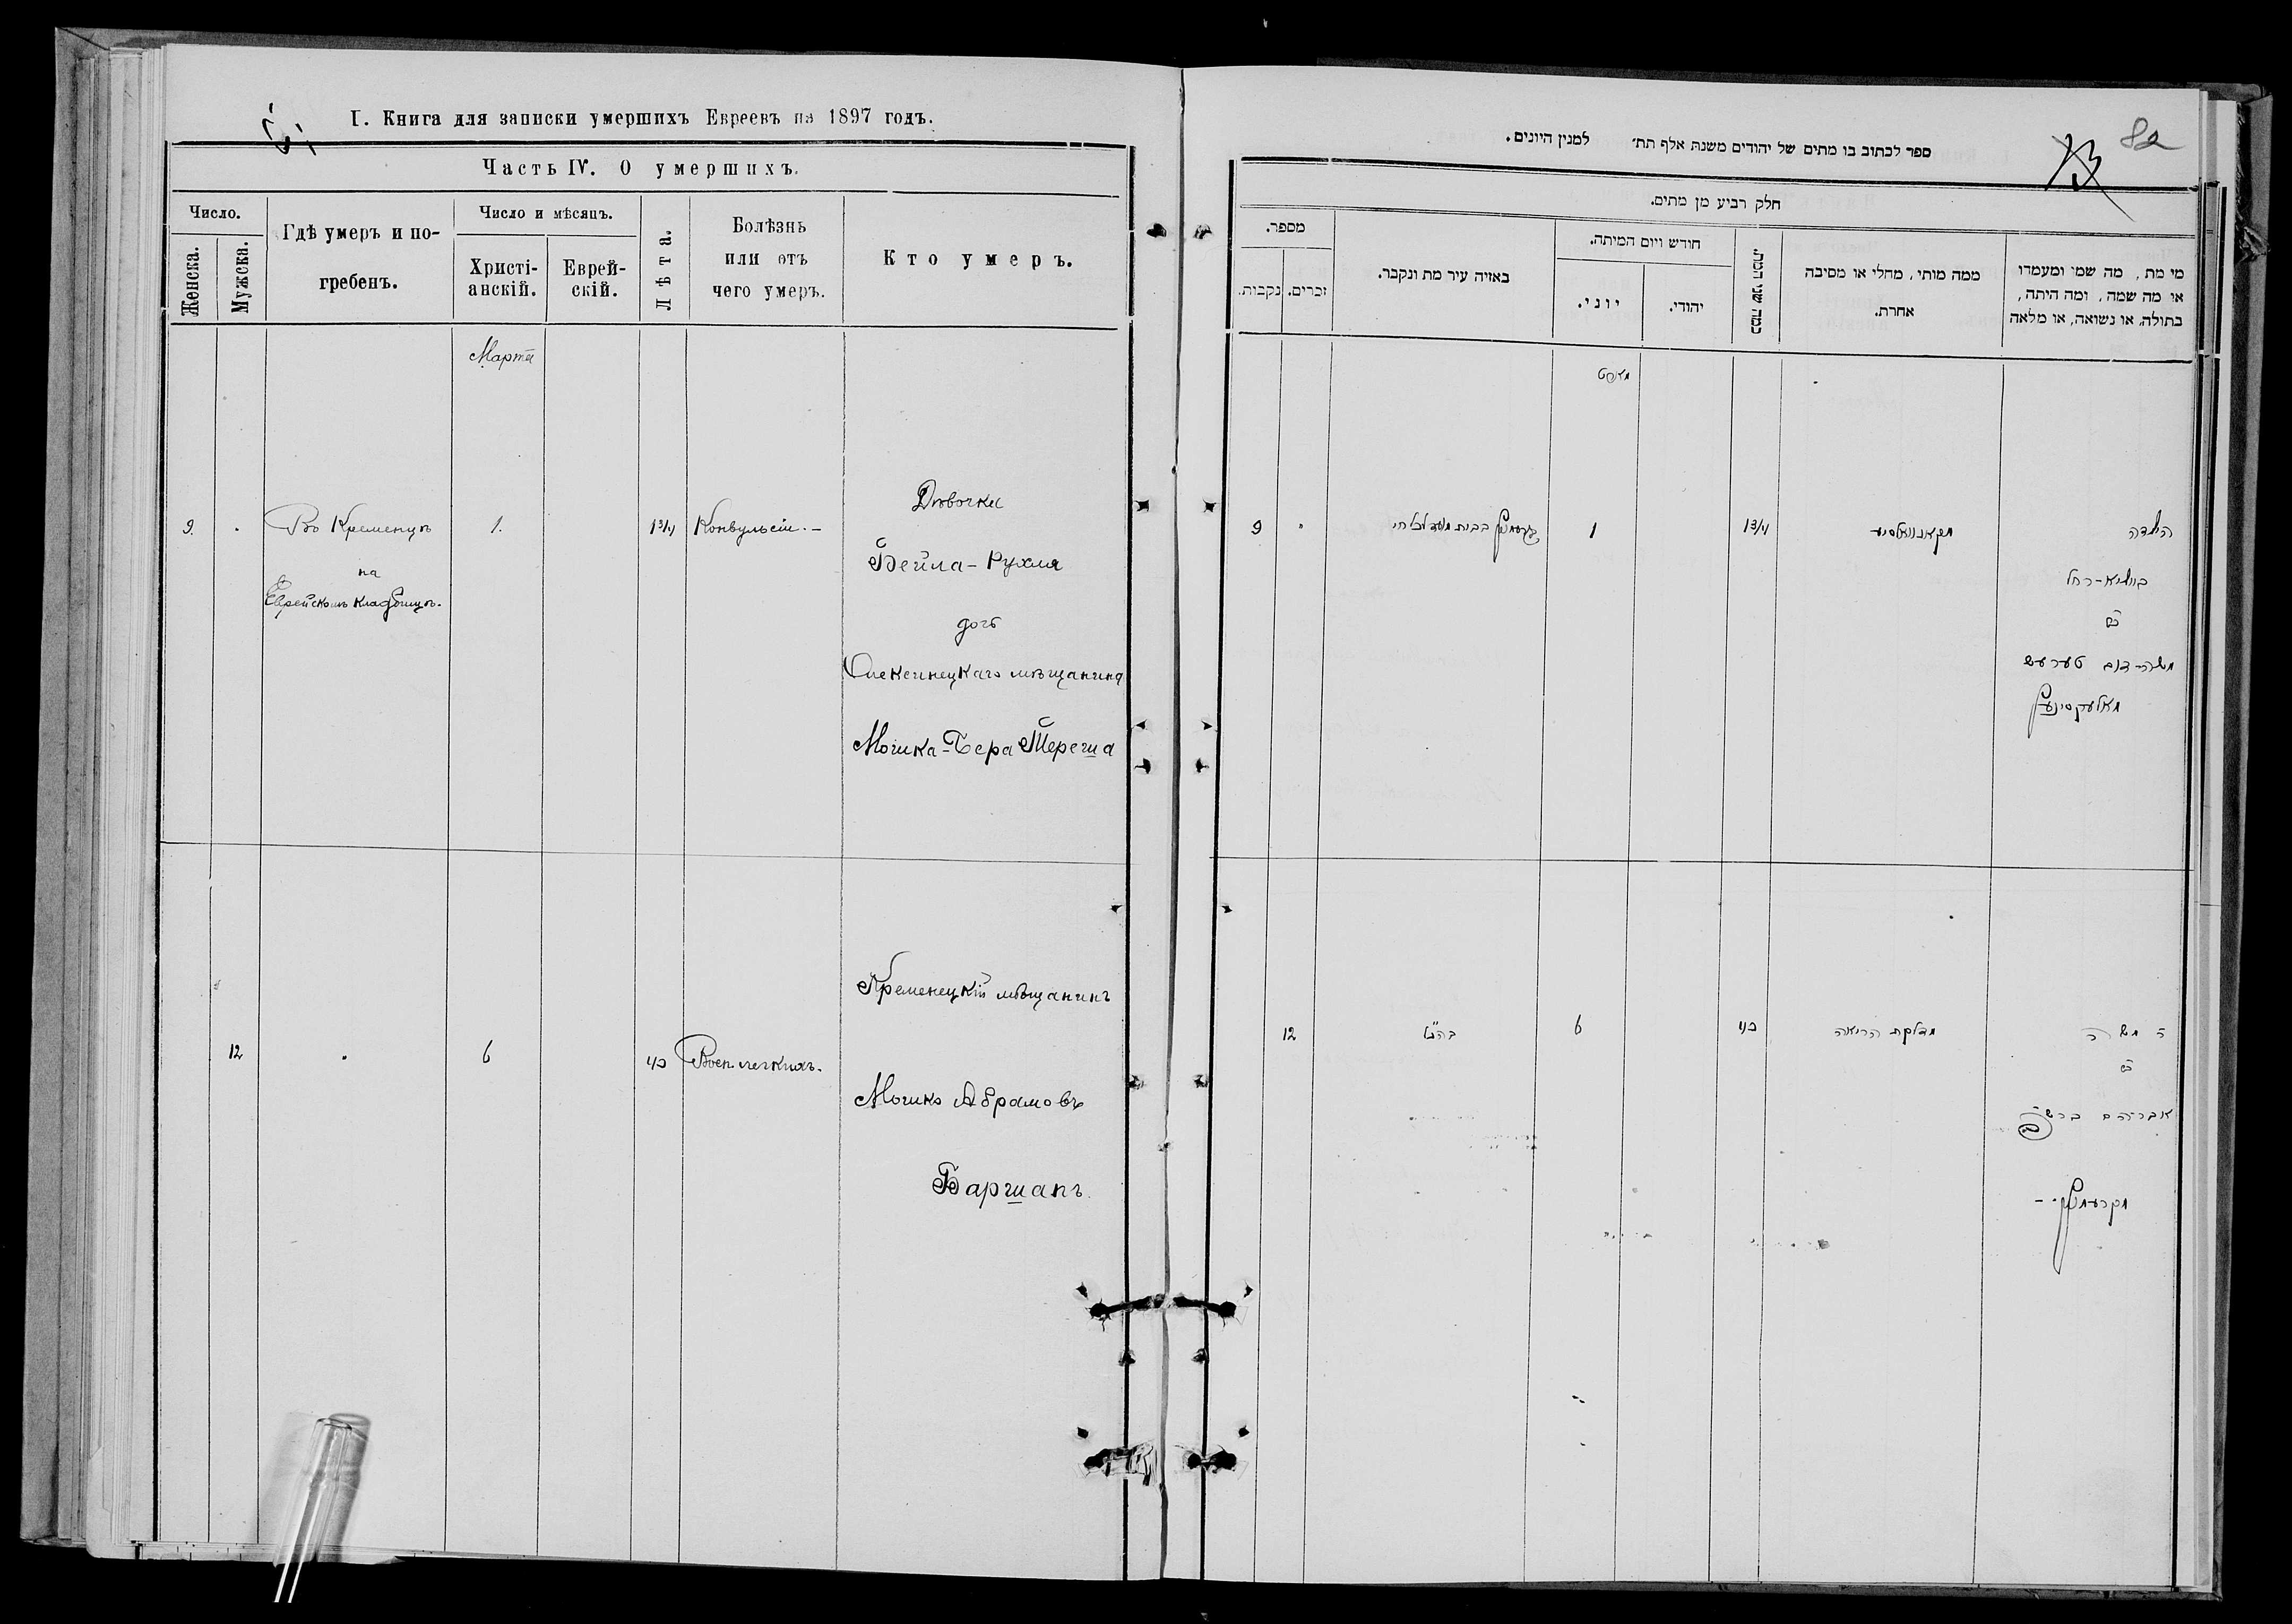 I. Книга для записки умершихъ Евреевъ на 1897 годъ.
Часть IV. О умершихъ.
Число.
Женска.
Мужска.
Гдѣ умеръ и по-
гребенъ.
Число и мѣсяцъ.
Христі-
анскій.
Еврей-
скій.
Лѣта.
Болѣзнь
или отъ
чего умеръ.
Кто умеръ.
Марта
9.
Въ Кременцѣ
на
Еврейскомъ кладбищѣ.
1.
1 3/4
Конвульсіи.
Дѣвочка
Бейла-Рухля
дочь
Олексинецкаго мѣщанина
Мошка-Бера Тереша
12
6
Восп. легкихъ.
Кременецкій мѣщанинъ
Мошко Абрамовъ
Баршакъ.
82
ספר לכתוב בו מתים של יהודים משנת אלף תת׳ למנין היונים.
חלק רביע מן מתים.
מספר.
נקבות.
זכרים.
באזיה עיר מת ונקבר.
חודש ויום המיתה.
יוני.
יהודי.
ממה מותי, מחלי או מסיבה
אחרת.
מי מת, מה שמו ומעמדו
או מה שמה, ומה היתה,
בתולה, או נשואה, או מלאה
מארט
9
1
1 3/4
הילדה
ביילא-רחל
משה-דוב טערעש
12
6
דלקת הריאה
ר׳ משה